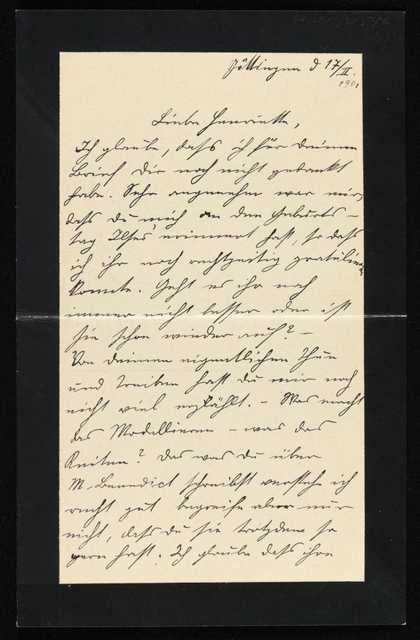 Göttingen d 17/II.
1901
Liebe Henriette,
Ich glaube, dass ich für Deinen
Brief Dir noch nicht gedankt
habe. Sehr angenehm war mir,
dass Du mich an den Geburts-
tag Ilses erinnert hast, so dass
ich ihr noch rechtzeitig gratulieren
konnte. Geht es ihr noch
immer nicht besser oder ist
sie schon wieder auf? –
Von Deinem eigentlichen Thun
und Treiben hast Du mir noch
nicht viel erzählt. – Was macht
das Modellieren – was das
Reiten? Das was Du über
M. Benedict schreibst verstehe ich
recht gut begreife aber nur
nicht, dass Du sie trotzdem so
gern hast. Ich glaube dass ihre